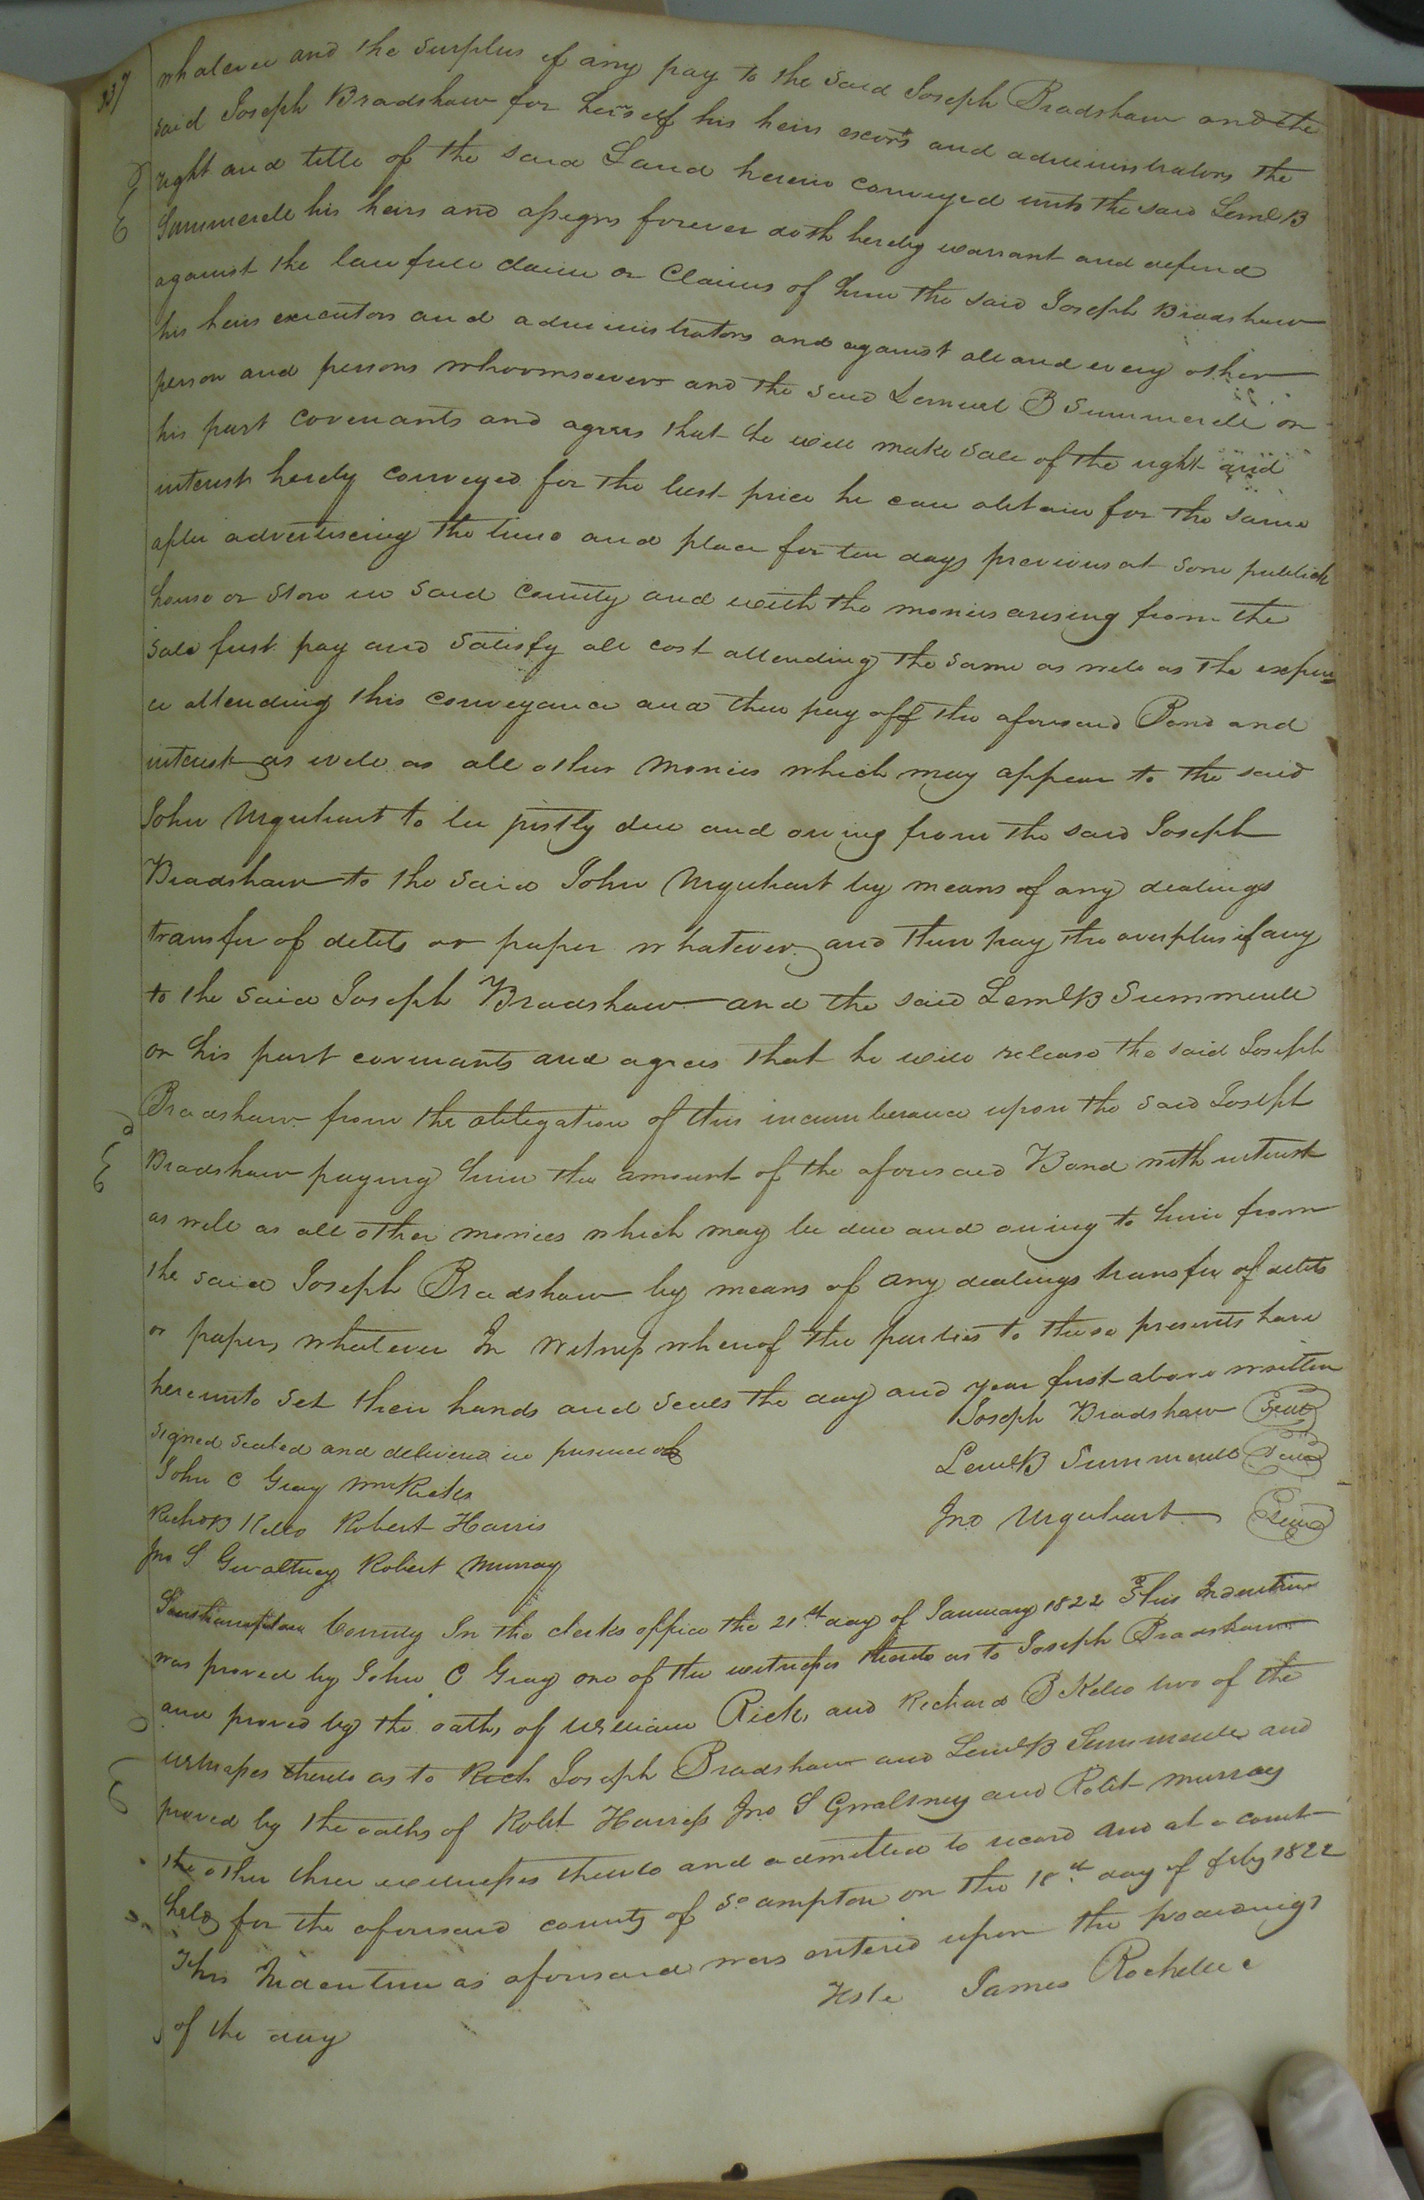 337
whatever and the surplus if any pay to the said Joseph Bradshaw and the
said Joseph Bradshaw for herself his heirs execrs and administrators the
right and title of the said Land herein conveyed unto the said Leml B
Summerell his heirs and assigns forever doth hereby warrant and defend
against the lawfull claim or Claims of him the said Joseph Bradshaw
his heirs executors and administrators and against all and every other
person and persons whoomsoever and the said Lemuel B Summerell on
his part covenants and agrees that he will make sale of the right and
interest hereby conveyed for the best price he can obtain for the same
after advertiseing the time and place for ten days previous at some publick
house or store in said county and with the monies arising from the
sale first pay and satisfy all cost attending the same as well as the expen
ce attending this conveyance and then pay off the aforesaid Bond and
interest as well as all other monies which may appear to the said
John Urquhart to be justly due and owing from the said Joseph
Bradshaw to the said John Urquhart by means of any dealings
transfer of debts or paper whatever and then pay the overplus if any
to the said Joseph Bradshaw and the said Leml B Summerell
on his part covenants and agrees that he will release the said Joseph
Bradshaw from the obligation of this incumberance upon the said Joseph
Bradshaw paying him the amount of the aforesaid Bond with interest
as well as all other monies which may be due and owing to him from
the said Joseph Bradshaw by means of any dealings transfer of debts
or papers whatever In witness whereof the parties to these presents have
hereunto set their hands and seals the day and year first above written
Signed sealed and delivered in presence of
Joseph Bradshaw Seal
John C Gray Wm Ricks
Leml B Summerell Seal
Richd B Kello Robert Harris
Jno Urquhart Seal
Jno S Gwaltney Robert Murray
Southampton County In the clerks office the 21st day of January 1822 This Indenture
was proved by John C Gray one of the witnesses thereto as to Joseph Bradshaw
and proved by the oaths of William Ricks and Richard B Kello two of the
witnesses thereto as to Rich Joseph Bradshaw and Leml B Summerell and
proved by the oaths of Robt Harriss Jno S Gwaltney and Robt Murray
the other three witnesses thereto and admitted to record and at a court
held for the aforesaid county of So ampton on the 18th day of feby 1822
This Indenture as aforesaid was entered upon the proceedings
of the day
Teste James Rochelle c